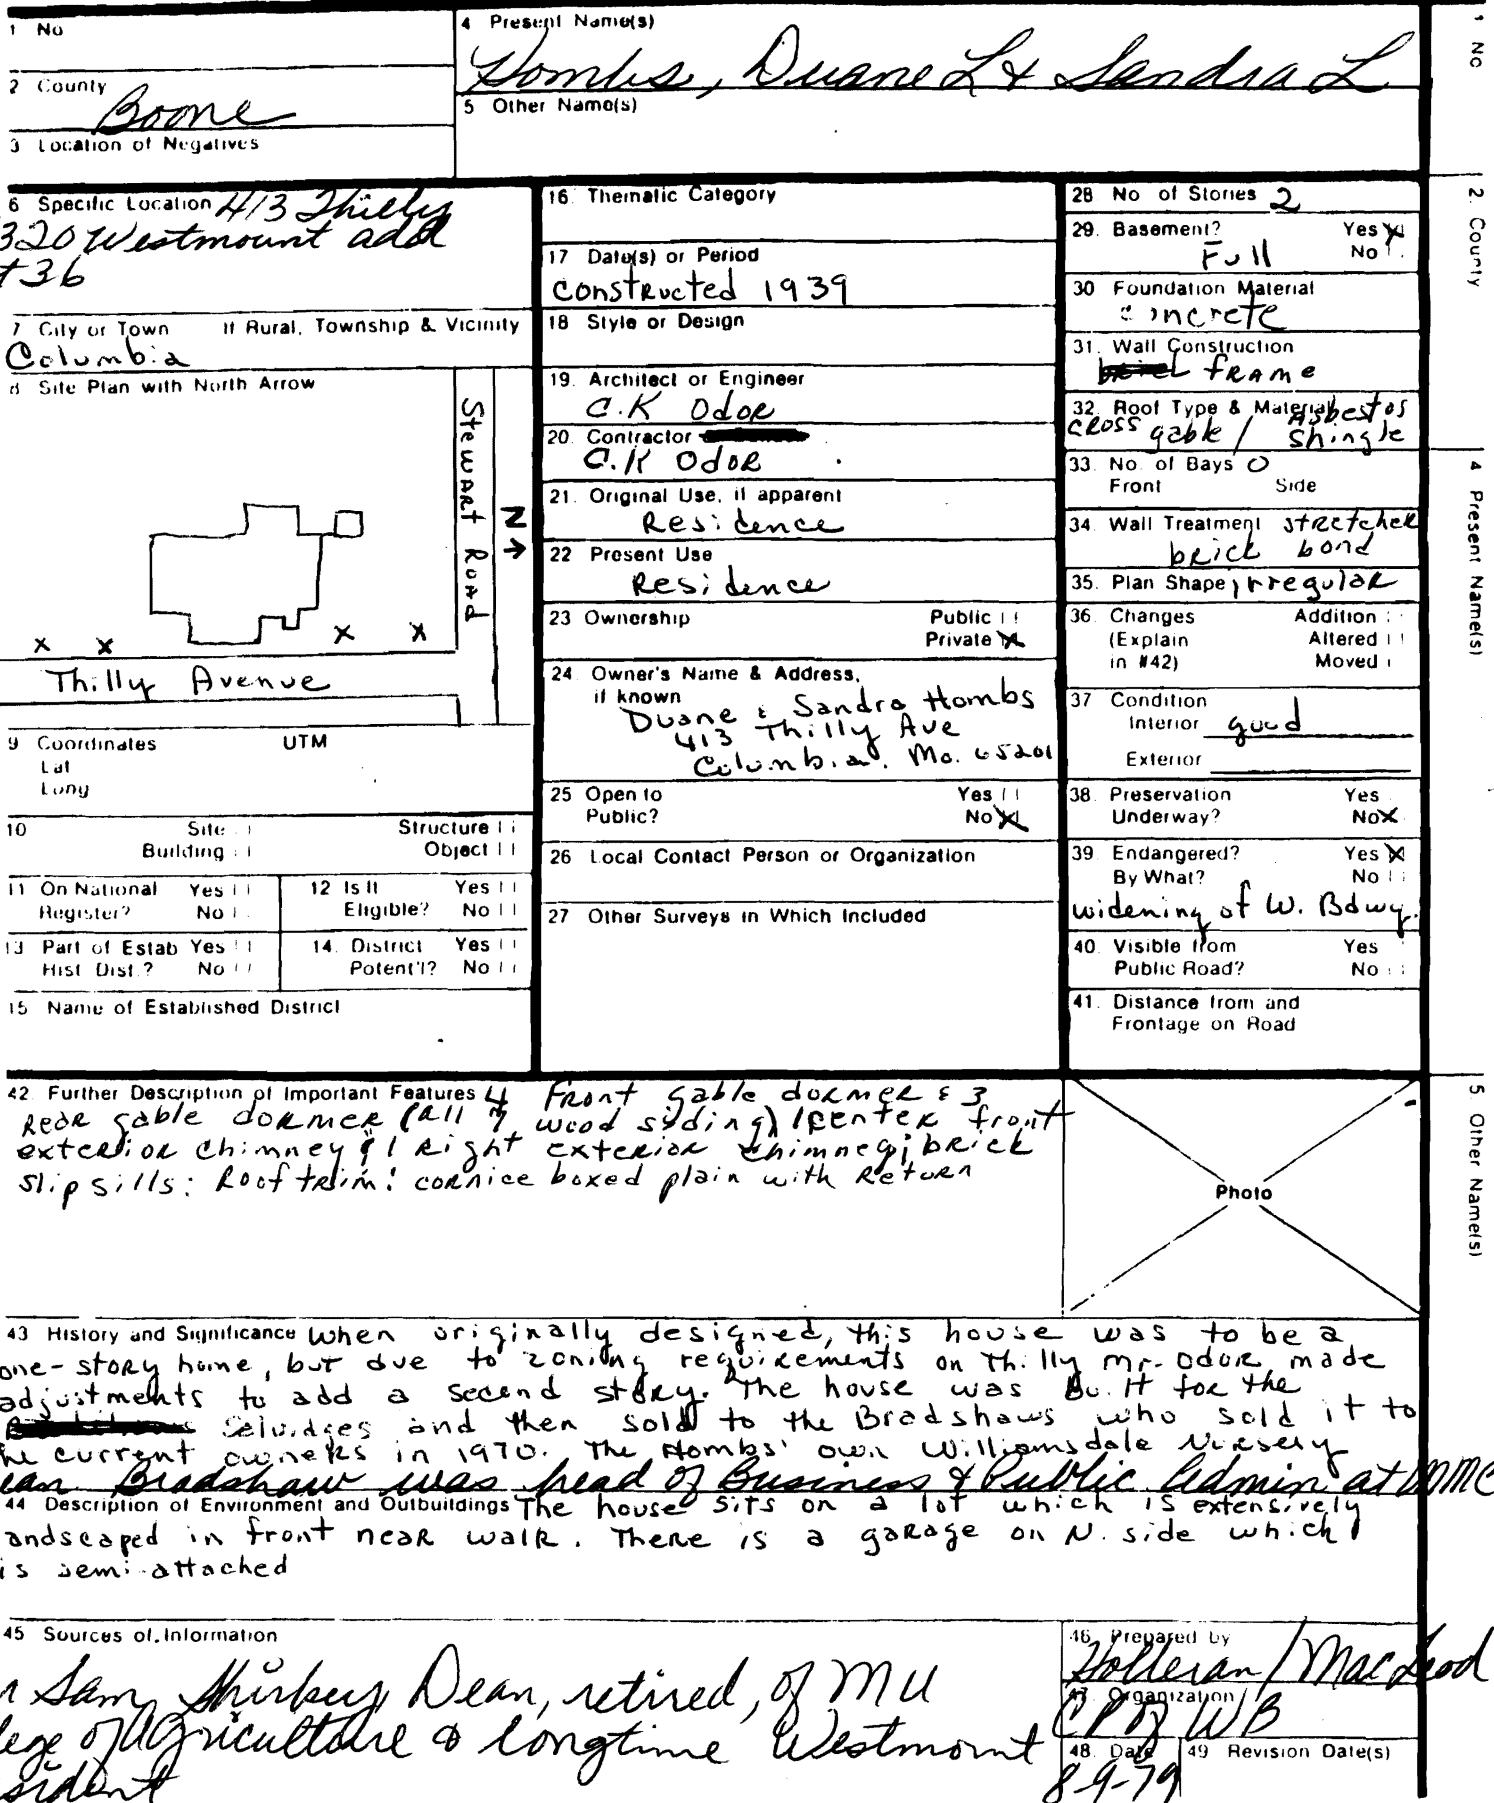 1 No
4 Present Name(s)
Hombs, Duane L & Sandra L
2 County
Boone
5 Other Name(s)
3 Location of Negatives
6 Specific Location 413 Thilly
320 Westmount add
#36
7 City or Town If Rural, Township & Vicinity
Columbia
8 Site Plan with North Arrow
Stewart Road
N →
Thilly Avenue
9 Coordinates UTM
Lat
Long
10 Site Structure
Building Object
11 On National Register? Yes No
12 Is It Eligible? Yes No
13 Part of Estab Hist Dist.? Yes No
14. District Potent'l? Yes No
15 Name of Established District
16. Thematic Category
17 Date(s) or Period
constructed 1939
18 Style or Design
19. Architect or Engineer
C.K Odor
20. Contractor
C.K Odor
21. Original Use, if apparent
Residence
22 Present Use
Residence
23 Ownership Public
Private X
24. Owner's Name & Address,
if known
Duane & Sandra Hombs
413 Thilly Ave
Columbia. Mo. 65201
25 Open to Yes
Public? No X
26 Local Contact Person or Organization
27 Other Surveys in Which Included
28 No of Stories 2
29. Basement? Yes X
Full No
30 Foundation Material
concrete
31. Wall Construction
frame
32. Roof Type & Material Asbestos
cross gable / shingle
33. No. of Bays 0
Front Side
34. Wall Treatment stretcher
brick bond
35. Plan Shape irregular
36. Changes Addition
(Explain Altered
in #42) Moved
37 Condition
Interior good
Exterior
38 Preservation Yes
Underway? No X
39. Endangered? Yes X
By What? No
widening of W. Bdwy.
40. Visible from Yes
Public Road? No
41. Distance from and
Frontage on Road
42. Further Description of Important Features 4 front gable dormer & 3
rear gable dormer (all 7 wood siding) 1 center front
exterior chimney & 1 right exterior chimney; brick
slip sills: Roof trim: cornice boxed plain with Return
Photo
43 History and Significance When originally designed, this house was to be a
one-story home, but due to zoning requirements on Thilly Mr. Odor made
adjustments to add a second story. The house was built for the
Selvidges and then sold to the Bradshaws who sold it to
he current owners in 1970. The Hombs' own Williamsdale Nursery
ean Bradshaw was head of Business & Public Admin at
44 Description of Environment and Outbuildings The house sits on a lot which is extensively
andscaped in front near walk. There is a garage on N. side which
is semi-attached
45 Sources of Information
n Sam Shirkey, Dean, retired, of MU
lege of Agriculture & longtime Westmount
sident
46. Prepared by
Holleran / MacLeod
47. Organization
CP of WB
48. Date
8-9-79
49 Revision Date(s)
1 No
2. County
4 Present Name(s)
5 Other Name(s)